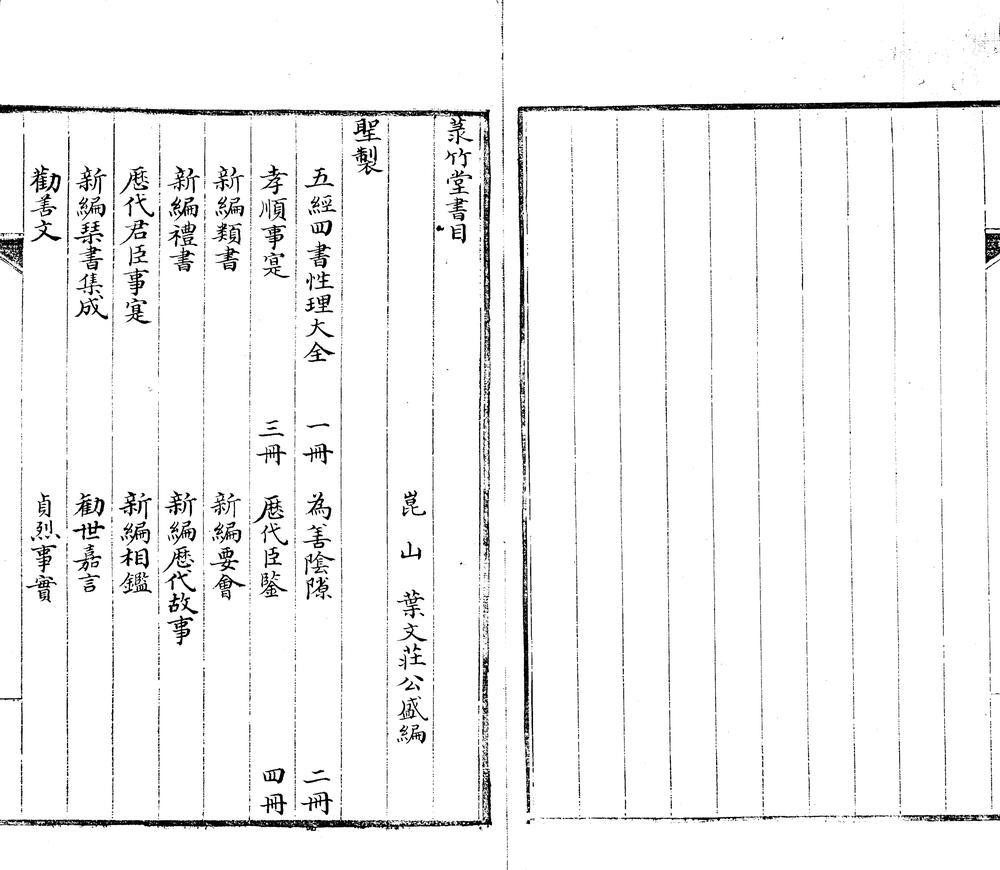 菉竹堂書目
崑山 葉文莊公盛編
聖製
五經四書性理大全 一冊 為善陰隲 二冊
孝順事寔 三冊 歷代臣鑒 四冊
新編類書 新編要會
新編禮書 新編歷代故事
歷代君臣事寔 新編相鑑
新編琹書集成 勸世嘉言
勸善文 貞烈事實